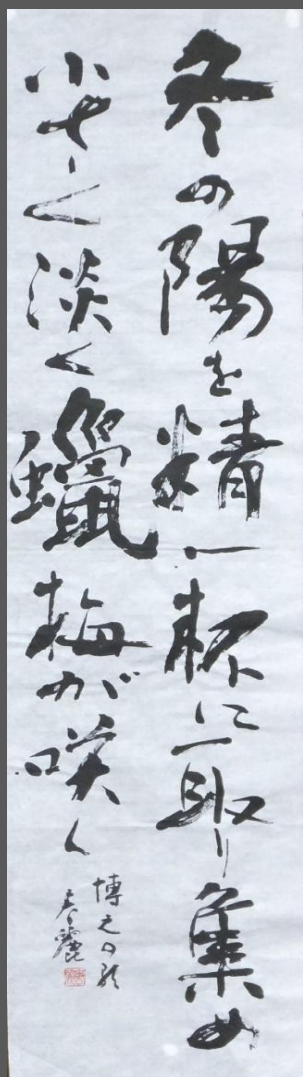 冬の陽を精一杯に取り集め
小さく淡く蠟梅が咲く
博之の歌
春麗